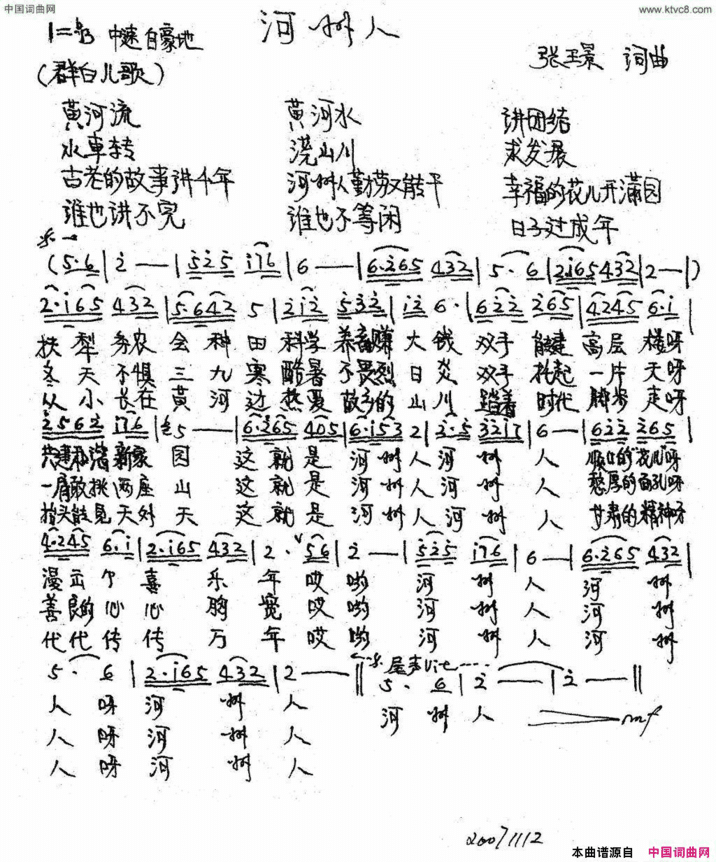 中国词曲网
www.ktvc8.com
河州人
1= 中速 自豪地
张玉景 词曲
(群白儿歌)
黄河流 黄河水 讲团结
水車转 浇山川 求发展
古老的故事讲千年 河州人勤劳又能干 幸福的花儿开满园
谁也讲不完 谁也不等闲 日子过成年
(5·6 | 2 — | 5 2 5 1 7 6 | 6 — | 6·2 6 5 4 3 2 | 5· 6 | 2 1 6 5 4 3 2 | 2 — | )
2·1 6 5 4 3 2 | 5·6 4 2 5 | 2 1 2 5 3 2 | 1 2 6· | 6 2 2 2 6 5 | 4 2 4 5 6·1 |
扶犁务农会种田科学养畜赚大钱双手能建高层楼呀
冬天不惧三九寒酷暑不畏烈日炎双手托起一片天呀
从小长在黄河边热爱故乡的山川踏着时代脚步走呀
2 5 6 2 1 7 6 | 5 — | 6·2 6 5 4 0 5 | 6·1 5 3 2 | 2·5 3 2 1 7 | 6 — | 6 2 2 2 6 5 |
新家园这就是河州人河州人 花儿呀
一肩敢挑两座山这就是河州人河州人憨厚的面孔呀
抬头能见天外天这就是河州人河州人甘肃的精神呀
4·2 4 5 6·1 | 2·1 6 5 4 3 2 | 2· 5 6 | 2 — | 5 2 5 1 7 6 | 6 — | 6·2 6 5 4 3 2 |
漫出个喜乐年哎哟河州人河州
善良的心心胸宽哎哟河州人河州
代代传传万年哎哟河州人河州
5· 6 | 2·1 6 5 4 3 2 | 2 — || 尾声 5· 6 | 2 — | 2 — ||
人呀河州人 河州人 mf
人呀河州人
人呀河州人
2007/11/2
本曲谱源自 中国词曲网